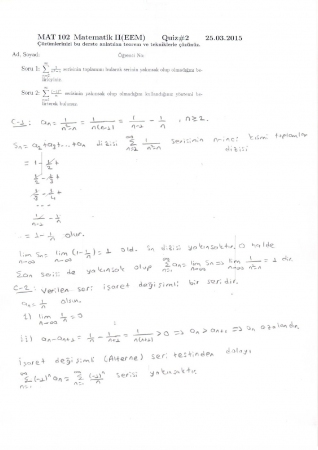 MAT 102 Matematik II(EEM) Quiz#2 25.03.2015
Çözümlerinizi bu derste anlatılan teorem ve tekniklerle çözünüz.
Ad, Soyad: Öğrenci No:
Soru 1: serisinin toplamını bularak serinin yakınsak olup olmadığını be-
lirleyiniz.
Soru 2: serisinin yakınsak olup olmadığını kullandığınız yöntemi be-
lirterek bulunuz.
C-1: an = = = 1/n-1 - 1/n , n≥2.
Sn = a2+a3+...+an dizisi serisinin n-inci kısmi toplamlar
dizisi
= 1 - 1/2 +
1/2 - 1/3 +
1/3 - 1/4 +
...
1/n-1 - 1/n
= 1 - 1/n olur.
lim Sn = lim (1-1/n) = 1 old. Sn dizisi yakınsaktır. O halde
n→∞ n→∞
Σan serisi de yakınsak olup = 1 dir.
C-2: Verilen seri işaret değişimli bir seridir.
an = 1/n olsun.
i) lim 1/n = 0
n→∞
ii) an - an+1 = 1/n - 1/n+1 = 1/n(n+1) > 0 ⇒ an > an+1 ⇒ an azalandır
işaret değişimli (Alterne) seri testinden dolayı
serisi yakınsaktır